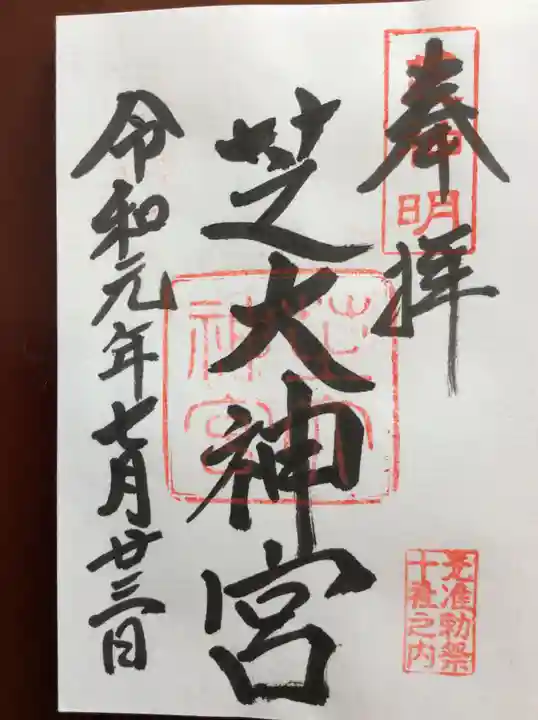 奉拝
芝大神宮
令和元年七月廿三日
芝大
神宮
元准勅祭
十社之内